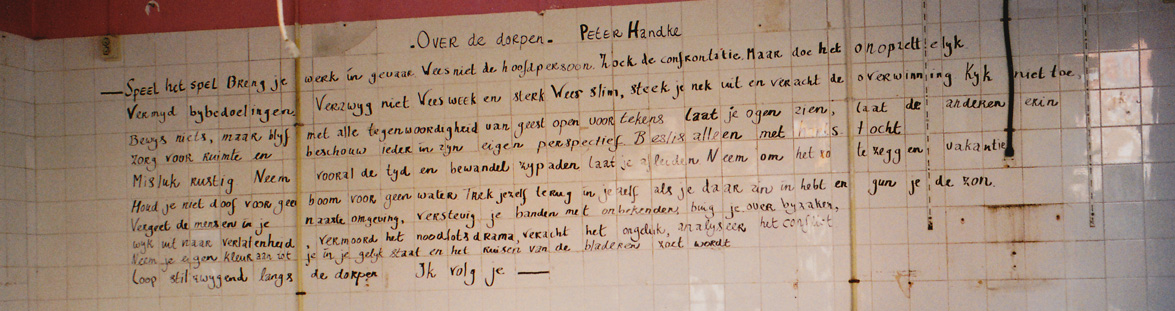 . OVER de dorpen. PETER Handke
— SPEEL het spel BReng je werk in gevaar. Wees niet de hoofdpersoon. Zoek de confrontatie. Maar doe het onopzettelyk
Vermyd bybedoelingen Verzwyg niet Wees week en sterk Wees slim, steek je nek uit en veracht de overwinning Kyk niet toe,
Bewys niets, maar blyf met alle tegenwoordigheid van geest open voor tekens laat je ogen zien, laat de anderen erin
zorg voor ruimte en beschouw ieder in zyn eigen perspectief Beslis alleen met tocht
Misluk rustig Neem vooral de tyd en bewandel zypaden laat je afleiden Neem om het zo te zeggen vakantie
Houd je niet doof voor geen boom voor geen water Trek jezelf terug in jezelf als je daar zin in hebt en gun je de zon.
Vergeet de mensen in je naaste omgeving, verstevig je banden met onbekenders buig je over byzaken,
wyk uit naar verlatenheid, vermoord het noodlotsdrama, veracht het ongeluk, analyseer het conflict
Neem je eigen kleur aan tot je in je gelyk staat en het ruisen van de bladeren zoet wordt
Loop stilzwygend langs de dorpen Ik volg je —